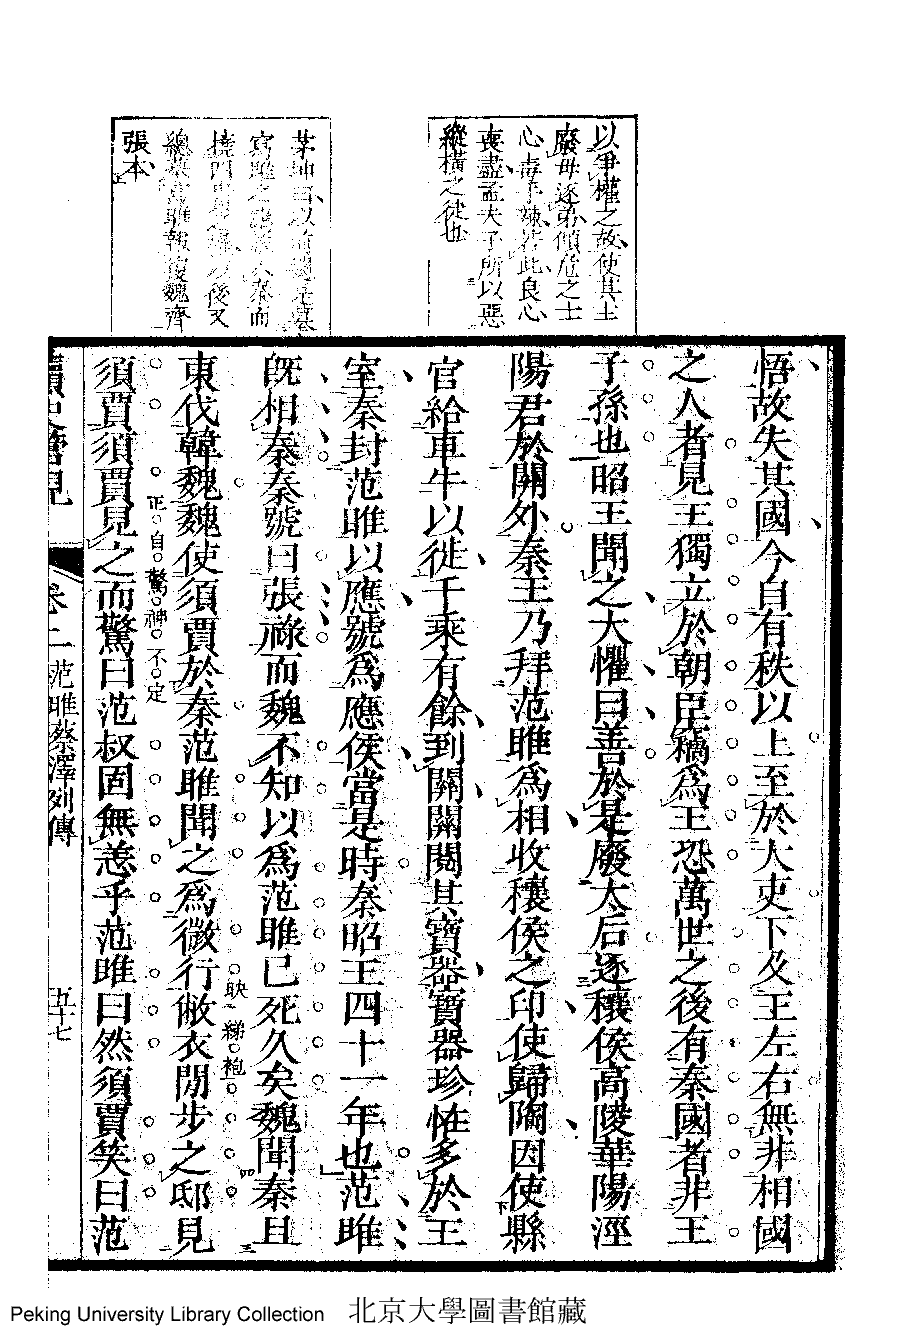 以爭權之故使其主
廢母逐弟傾危之士
心毒手辣若此良心
喪盡孟夫子所以惡
縱橫之徒也
張本
悟故失其國今自有秩以上至於大吏下及王左右無非相國
之人者見王獨立於朝臣竊爲王恐萬世之後有秦國者非王
子孫也昭王聞之大懼曰善於是廢太后逐穰侯高陵華陽涇
陽君於關外秦王乃拜范雎爲相收穰侯之印使歸陶因使縣
官給車牛以徙千乘有餘到關關閱其寶器寶器珍怪多於王
室秦封范雎以應號爲應侯當是時秦昭王四十一年也范雎
既相秦秦號曰張祿而魏不知以爲范雎已死久矣魏聞秦且
映綈袍
東伐韓魏魏使須賈於秦范雎聞之爲微行敝衣閒步之邸見
正自驚神不定
須賈須賈見之而驚曰范叔固無恙乎范雎曰然須賈笑曰范
讀史管見
卷二 范雎蔡澤列傳
五十七
Peking University Library Collection 北京大學圖書館藏